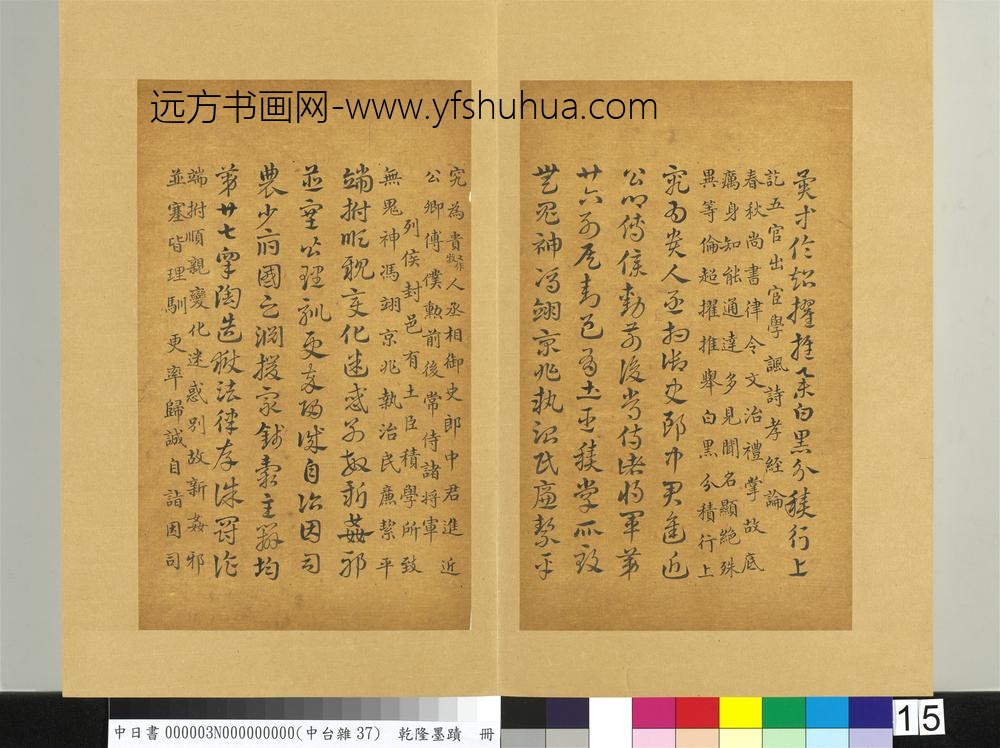 远方书画网-www.yfshuhua.com
異等倫超擢推舉白黑分積行上
訖五官出官學諷詩孝經論
春秋尚書律令文治禮掌故底
癘身知能通達多見聞名顯絕殊
異等倫超擢推舉白黑分積行上
究為貴人丞相御史郎中君進近
公卿傅僕勳前後常侍諸將軍第
廿六列侯封邑有土臣積學所致
無鬼神馮翊京兆執治民廉絜平
究為貴人丞相御史郎中君進近
公卿傅僕勳前後常侍諸將軍
列侯封邑有土臣積學所致
無鬼神馮翊京兆執治民廉絜平
端拊順親變化迷惑別故新姦邪
並塞皆理馴更率歸誠自詣因司
農少府國之淵援眾錢穀主辨均
第廿七皐陶造獄法律存誅罰詐
端拊順親變化迷惑別故新姦邪
並塞皆理馴更率歸誠自詣因司
中日書 000003N000000000(中台雜37) 乾隆墨蹟 冊
15